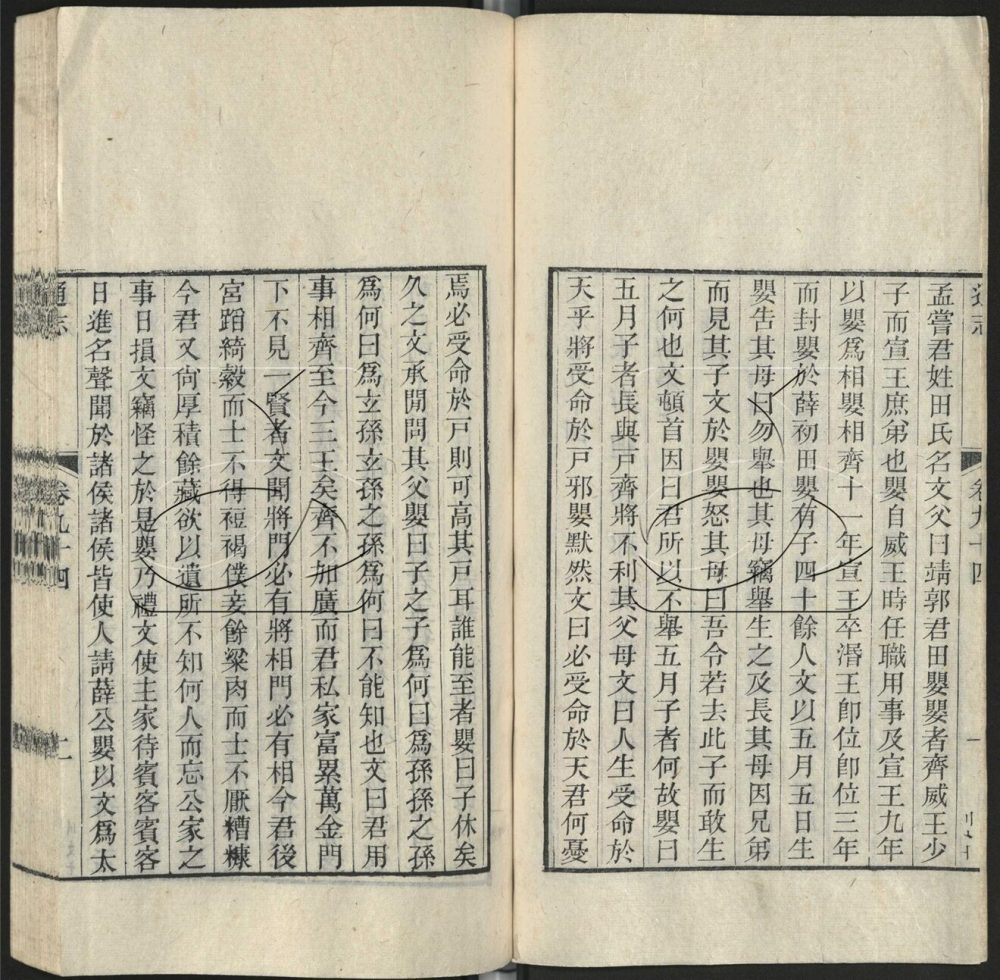 通志
卷九十四
一
孟嘗君姓田氏名文父曰靖郭君田嬰嬰者齊威王少
子而宣王庶弟也嬰自威王時任職用事及宣王九年
以嬰爲相嬰相齊十一年宣王卒湣王卽位卽位三年
而封嬰於薛初田嬰有子四十餘人文以五月五日生
嬰吿其母曰勿舉也其母竊舉生之及長其母因兄弟
而見其子文於嬰嬰怒其母曰吾令若去此子而敢生
之何也文頓首因曰君所以不舉五月子者何故嬰曰
五月子者長與戸齊將不利其父母文曰人生受命於
天乎將受命於戸邪嬰默然文曰必受命於天君何憂
焉必受命於戸則可高其戸耳誰能至者嬰曰子休矣
久之文承閒問其父嬰曰子之子爲何曰爲孫孫之孫
爲何曰爲玄孫玄孫之孫爲何曰不能知也文曰君用
事相齊至今三王矣齊不加廣而君私家富累萬金門
下不見一賢者文聞將門必有將相門必有相今君後
宮蹈綺縠而士不得裋褐僕妾餘粱肉而士不厭糟糠
今君又尙厚積餘藏欲以遺所不知何人而忘公家之
事日損文竊怪之於是嬰乃禮文使主家待賓客賓客
日進名聲聞於諸侯諸侯皆使人請薛公嬰以文爲太
通志
卷九十四
二